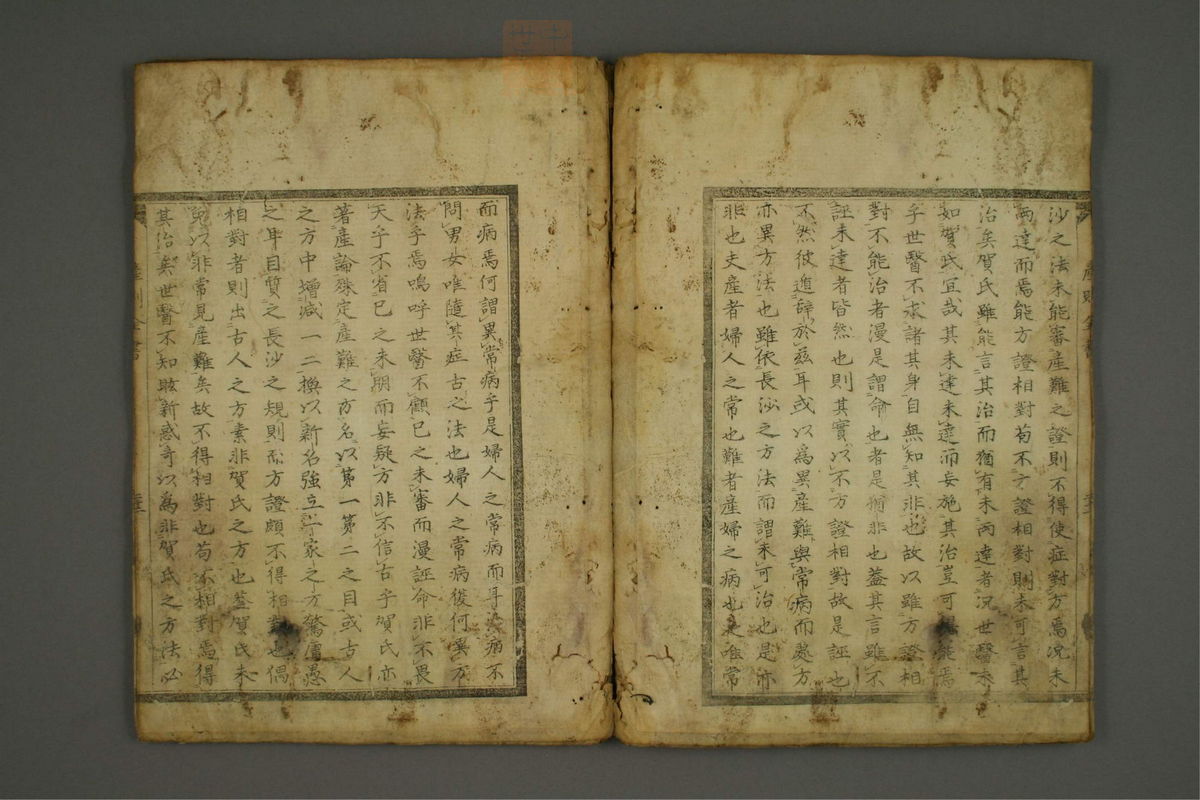 沙之法未能審産難之證則不得使症對方焉况未
両達而焉能方證相對苟不方證相對則未可言其
治矣賀氏雖能言其治而猶有未両達者况世醫乎
如賀氏宜哉其未達未達而妄施其治豈可得能焉
乎世醫不求諸其身自無知其非也故以雖方證相
對不能治者漫是謂命也者是猶非也蓋其言雖不
誣未達者皆然也則其實以不方證相對故是誣也
不然彼遁辞於茲耳或以為異産難與常病而處方
亦異方法也雖依長沙之方法而謂未可治也是亦
非也夫産者婦人之常也難者産婦之病也是唯常
而病焉何謂異常病乎是婦人之常病而耳疾病不
問男女唯隨其症古之法也婦人之常病獲何異方
法乎焉嗚呼世醫不顧已之未審而漫誣命非不畏
天乎不省已之未期而妄疑方非不信古乎賀氏亦
著産論殊定産難之方名以第一第二之目或古人
之方中増減一二換以新名強立一家之方驚庸愚
之耳目質之長沙之規則而方證頗不得相對也偶
相對者則出古人之方素非賀氏之方也蓋賀氏未
免以非常見産難矣故不得相對也苟不相對焉得
其治矣世醫不知眩新惑奇以為非賀氏之方法必